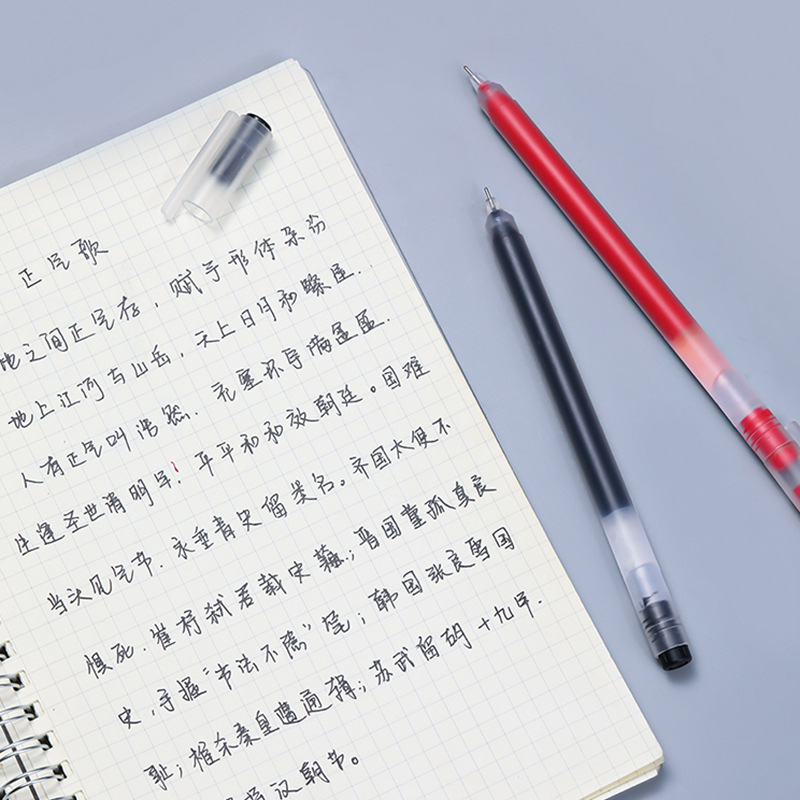 正气歌
地之间正气存，赋予形体杂份
地上江河与山岳，天上日月和繁星.
人有正气叫浩然. 充塞环宇满盈盈.
生逢圣世清明年! 平平和和效朝廷。国难
当头见气节. 永垂青史留类名。齐国太使不
惧死. 崔杼弑君载史藉；晋国董孤真良
史，手握“书法不隐”笔；韩国张良为国
耻；椎杀秦皇遭通揖；苏武留胡十九年.
汉朝节。